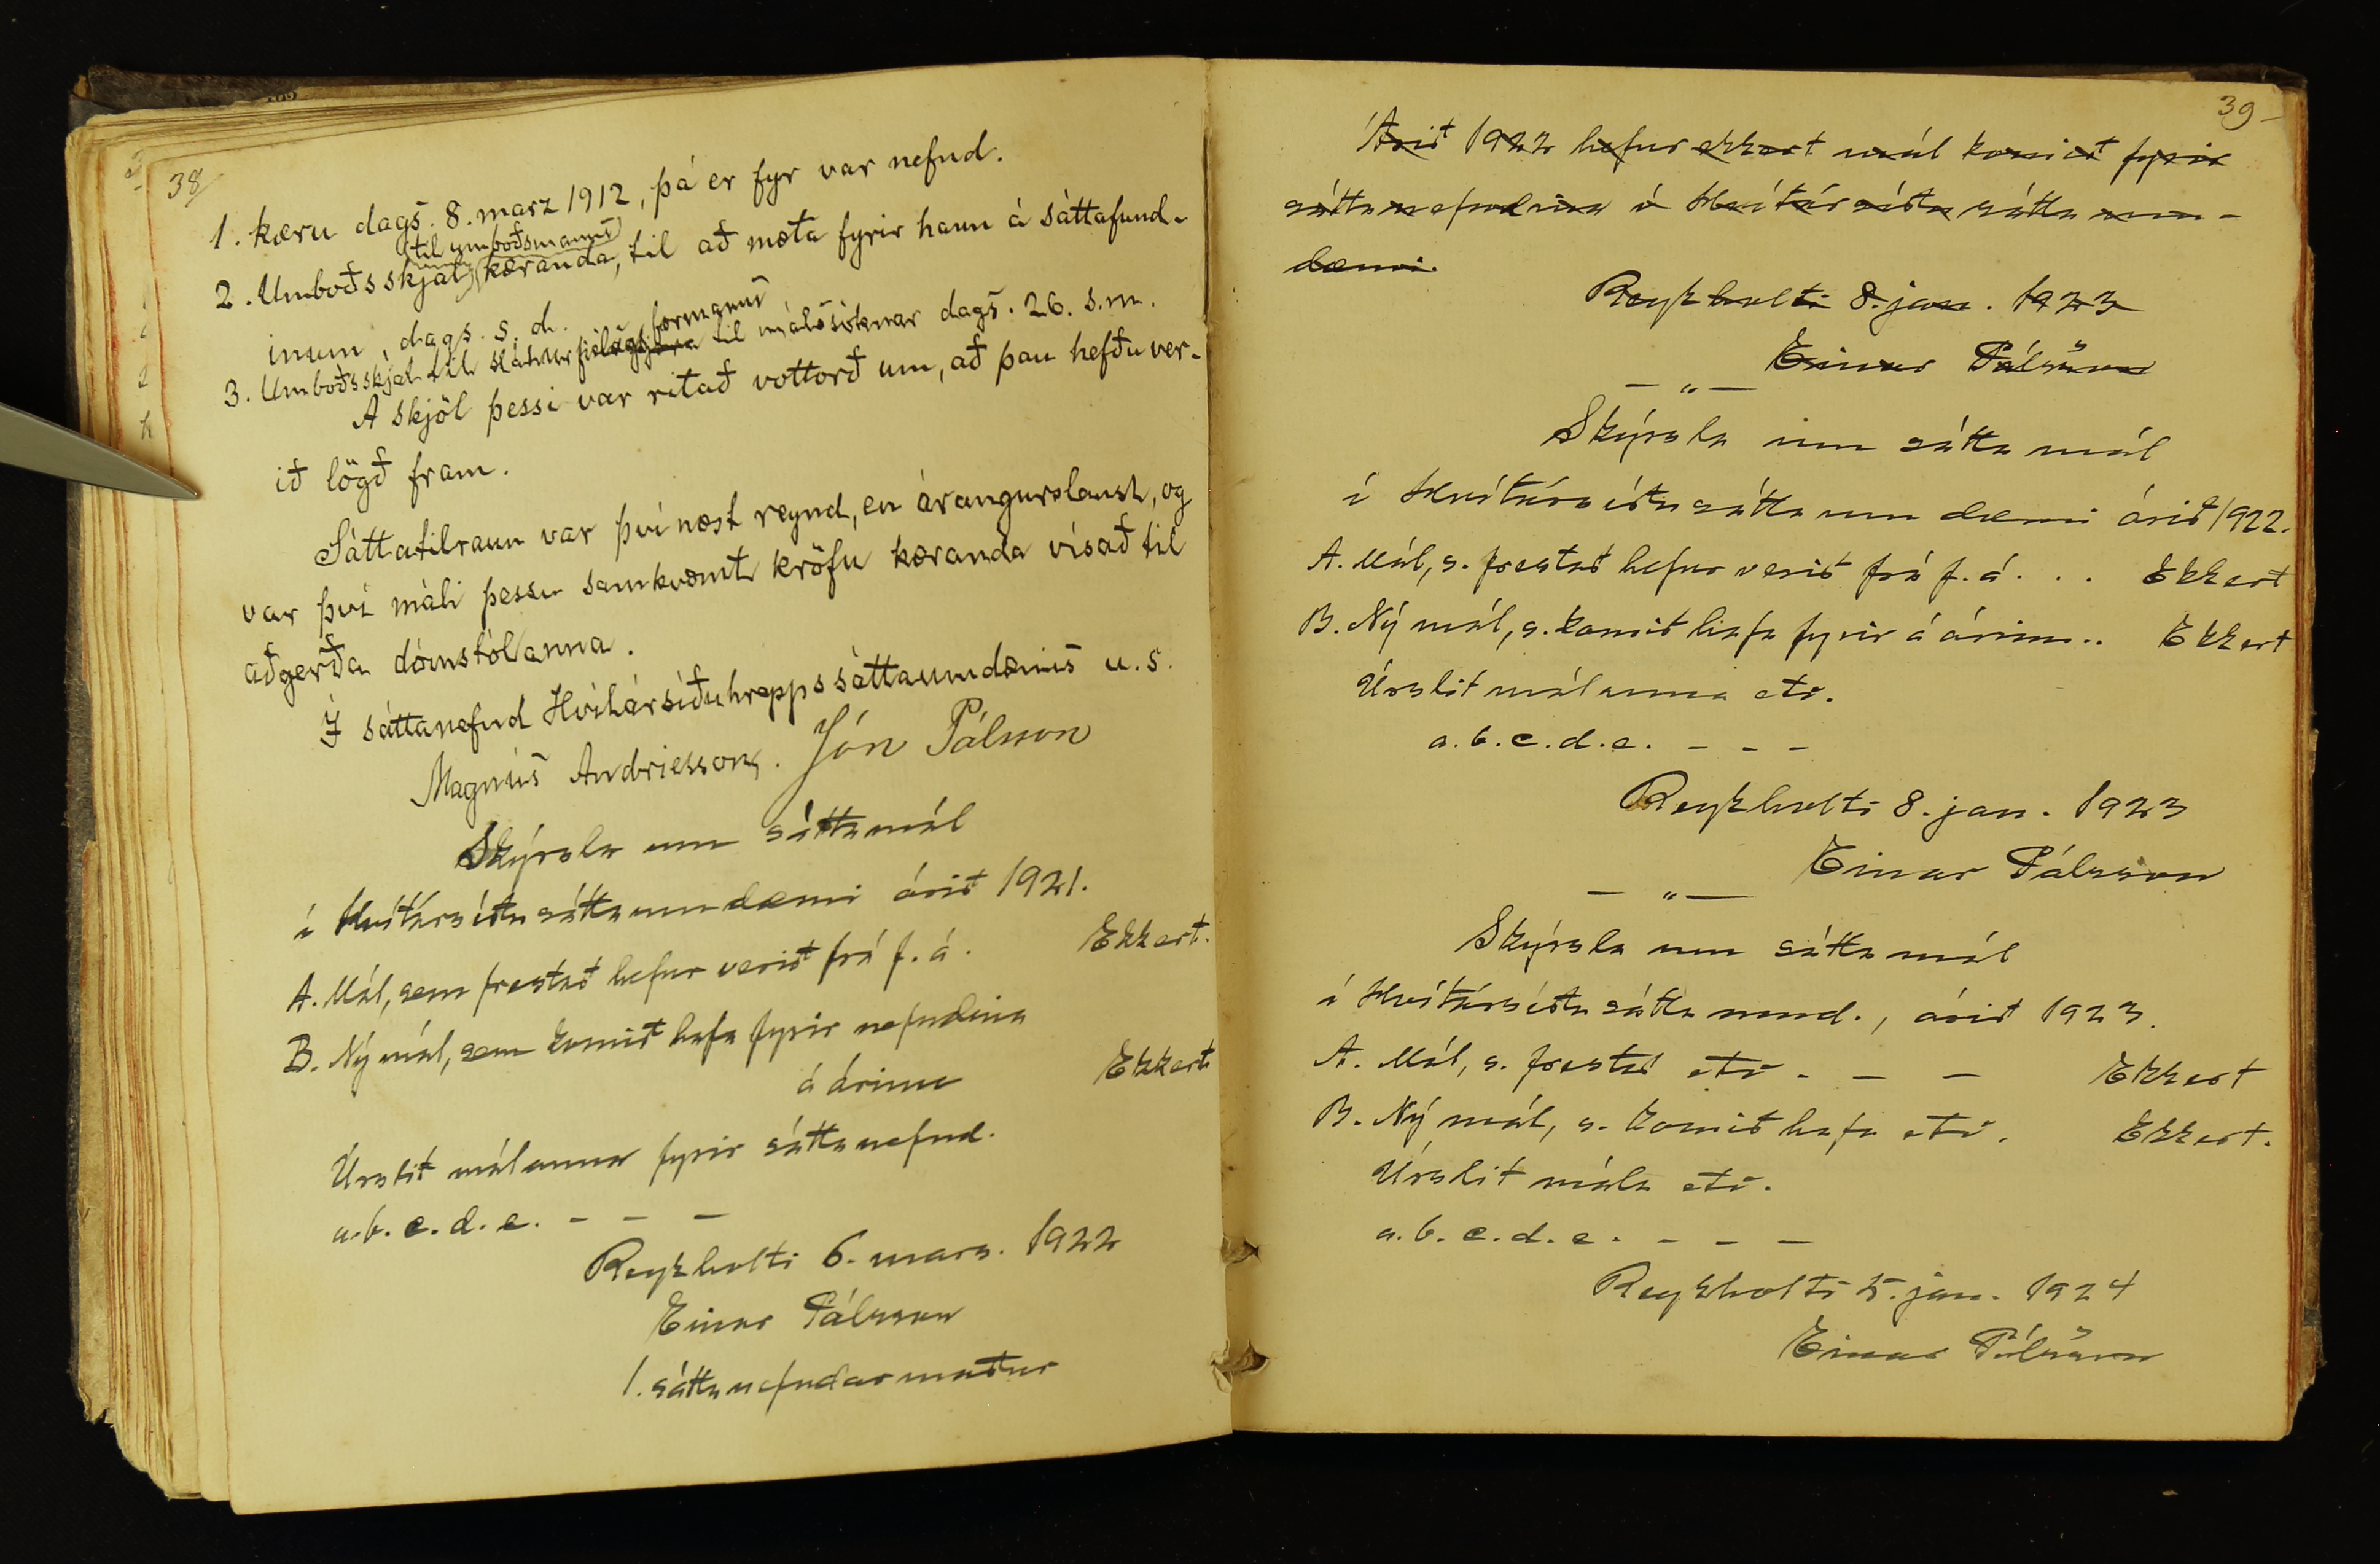 38
1. kæru dags. 8. marz 1912, þá er fyr var nefnd.
til umboðsmanns
2. Umboðsskjal kæranda, til að mæta fyrir hann á sáttafund-
inum, dags. s. d.
formanns
3. Umboðsskjal til sláturfjelags til málssóknar dags. 26. s.m.
Á skjöl þessi var ritað vottorð um, að þau hefðu ver-
ið lögð fram.
Sáttatilraun var því næst reynd, en árangurslaust, og
var því máli þessu samkvæmt kröfu kæranda vísað til
aðgerða dómstólanna.
Í sáttanefnd Hvítársíðuhrepps sáttaumdæmis u. s.
Magnús Andrjesson. Jón Pálsson
Skýrsla um sáttamál
í Hvítársíðusáttaumdæmi árið 1921.
A. Mál, sem frestað hefur verið frá f. á. Ekkert.
B. Ný mál, sem komið hafa fyrir nefndina
á árinu Ekkert
Úrslit málanna fyrir sáttanefnd.
a. b. c. d. e. - - -
Reykholti 6. mars. 1922
Einar Pálsson
1. sáttanefndarmaður
39
Árið 1922 hefur ekkert mál komið fyrir
sáttanefndina í Hvítársíðu sátta um-
dæmi.
Reykholti 8. jan. 1923
Einar Pálsson
— „ —
Skýrsla um sátta mál
í Hvítársíðusáttaumdæmi árið 1922.
A. Mál, s. frestað hefur verið frá f. á. . . Ekkert
B. Ný mál, s. komið hafa fyrir á árinu.. Ekkert
Úrslit málanna etc.
a. b. c. d. e. - - -
Reykholti 8. jan. 1923
Einar Pálsson
— „ —
Skýrsla um sátta mál
í Hvítársíðusátta umd., árið 1923.
A. Mál, s. frestað etc. - - Ekkert
B. Ný mál, s. komið hafa etc. Ekkert.
Úrslit mála etc.
a. b. c. d. e. - - -
Reykholti 5. jan. 1924
Einar Pálsson